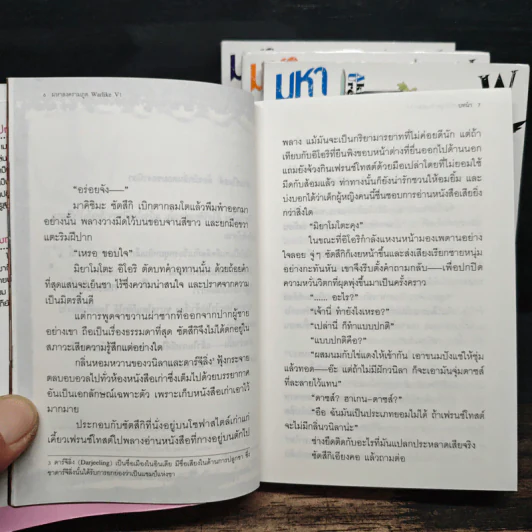 มหา
มหาสงครามภูต Warlike V1
"อร่อยจัง——"
มาคิชิมะ ซัตสึกิ เบิกตากลมโตแล้วพึมพำออกมา
อย่างนั้น พลางวางมีดไว้บนขอบจานสีขาว และยกมือขวา
แตะริมฝีปาก
"เหรอ ขอบใจ"
มิยาโมโตะ อิโอริ ตัดบทคำอุทานนั้น ด้วยถ้อยคำ
ที่สุดแสนจะเย็นชา ไร้ซึ่งความน่าสนใจ และปราศจากความ
เป็นมิตรสิ้นดี
แต่การพูดจาขวานผ่าซากที่ออกจากปากผู้ชาย
อย่างเขา ถือเป็นเรื่องธรรมดาที่สุด ซัตสึกิจึงไม่ได้ตกอยู่ใน
สภาวะเสียความรู้สึกแต่อย่างใด
กลิ่นหอมหวานของวนิลาและดาร์จีลิ่ง³ ฟุ้งกระจาย
ตลบอบอวลไปทั่วห้องหนังสือเก่าซึ่งเต็มไปด้วยบรรยากาศ
อันเป็นเอกลักษณ์เฉพาะตัว เพราะเก็บหนังสือเก่าเอาไว้
มากมาย
ประกอบกับซัตสึกิที่นั่งอยู่บนโซฟาสไตล์เก่าแก่
เคี้ยวเฟรนช์โทสต์ไปพลางอ่านหนังสือที่กางอยู่บนตักไป
3 ดาร์จีลิ่ง (Darjeeling) เป็นชื่อเมืองในอินเดีย มีชื่อเสียงในด้านการปลูกชา ซึ่ง
ชาดาร์จีลิ่งนั้นได้รับการยกย่องว่าเป็นแชมป์แห่งชา
บทนำ 7
พลาง แม้มันจะเป็นกริยามารยาทที่ไม่ค่อยดีนัก แต่ถ้า
เทียบกับอิโอริที่ยืนพิงขอบหน้าต่างที่ยื่นออกไปด้านนอก
แถมยังจ้วงกินเฟรนช์โทสต์ด้วยมือเปล่าโดยที่ไม่ยอมใช้
มีดกับส้อมแล้ว ท่าทางนั้นก็ยังน่ารักชวนให้อมยิ้ม และ
บ่งบอกได้ว่าเด็กผู้หญิงคนนี้ชื่นชอบการอ่านหนังสือเสียยิ่ง
กว่าสิ่งใด
"มิยาโมโตะคุง"
ในขณะที่อิโอริกำลังแหงนหน้ามองเพดานอย่าง
ใจลอย จู่ๆ ซัตสึกิก็เงยหน้าขึ้นและส่งเสียงเรียกชายหนุ่ม
อย่างกะทันหัน เขาจึงรีบตั้งคำถามกลับ——เพื่อปกปิด
ความหวั่นวิตกที่ผุดพุ่งขึ้นมาเป็นครั้งคราว
"...... อะไร?"
"เจ้านี่ ทำยังไงเหรอ?"
"เปล่านี่ ก็ทำแบบปกติ"
"แบบปกติคือ?"
"ผสมนมกับไข่แดงให้เข้ากัน เอาขนมปังแช่ให้ชุ่ม
แล้วทอด—อ๊ะ แต่ถ้าไม่มีฝักวนิลา ก็จะเอามันจุ่มดาซส์
ที่ละลายไว้แทน"
"ดาซส์? ฮาเกน–ดาซส์?"
"อือ ฉันมันเป็นประเภทยอมไม่ได้ ถ้าเฟรนช์โทสต์
จะไม่มีกลิ่นวนิลาน่ะ"
ช่างยึดติดกับอะไรที่มันแปลกประหลาดเสียจริง
ซัตสึกิเอียงคอ แล้วถามต่อ